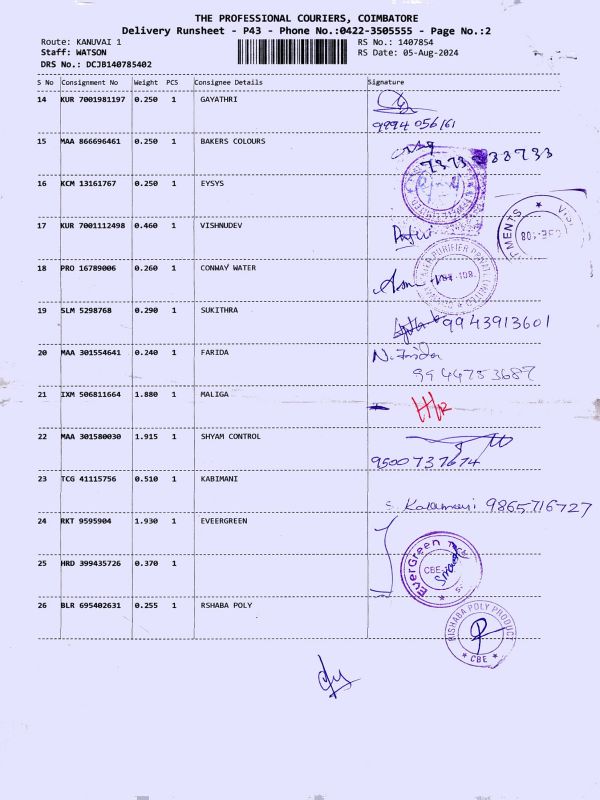 THE PROFESSIONAL COURIERS, COIMBATORE
Delivery Runsheet - P43 - Phone No.:0422-3505555 - Page No.:2
Route: KANUVAI 1 RS No.: 1407854
Staff: WATSON RS Date: 05-Aug-2024
DRS No.: DCJB140785402
S No Consignment No Weight PCS Consignee Details Signature
14 KUR 7001981197 0.250 1 GAYATHRI
9994 056161
15 MAA 866696461 0.250 1 BAKERS COLOURS
7373 933733
16 KCM 13161767 0.250 1 EYSYS
17 KUR 7001112498 0.460 1 VISHNUDEV
18 PRO 16789006 0.260 1 CONWAY WATER
19 SLM 5298768 0.290 1 SUKITHRA
9943913601
20 MAA 301554641 0.240 1 FARIDA N. Farida
9944753687
21 IXM 506811664 1.880 1 MALIGA
22 MAA 301580030 1.915 1 SHYAM CONTROL
9500737674
23 TCG 41115756 0.510 1 KABIMANI
9865716727
24 RKT 9595904 1.930 1 EVEERGREEN
EverGreen
CBE
25 HRD 399435726 0.370 1
26 BLR 695402631 0.255 1 RSHABA POLY
RISHABA POLY PRODUCT
* CBE *